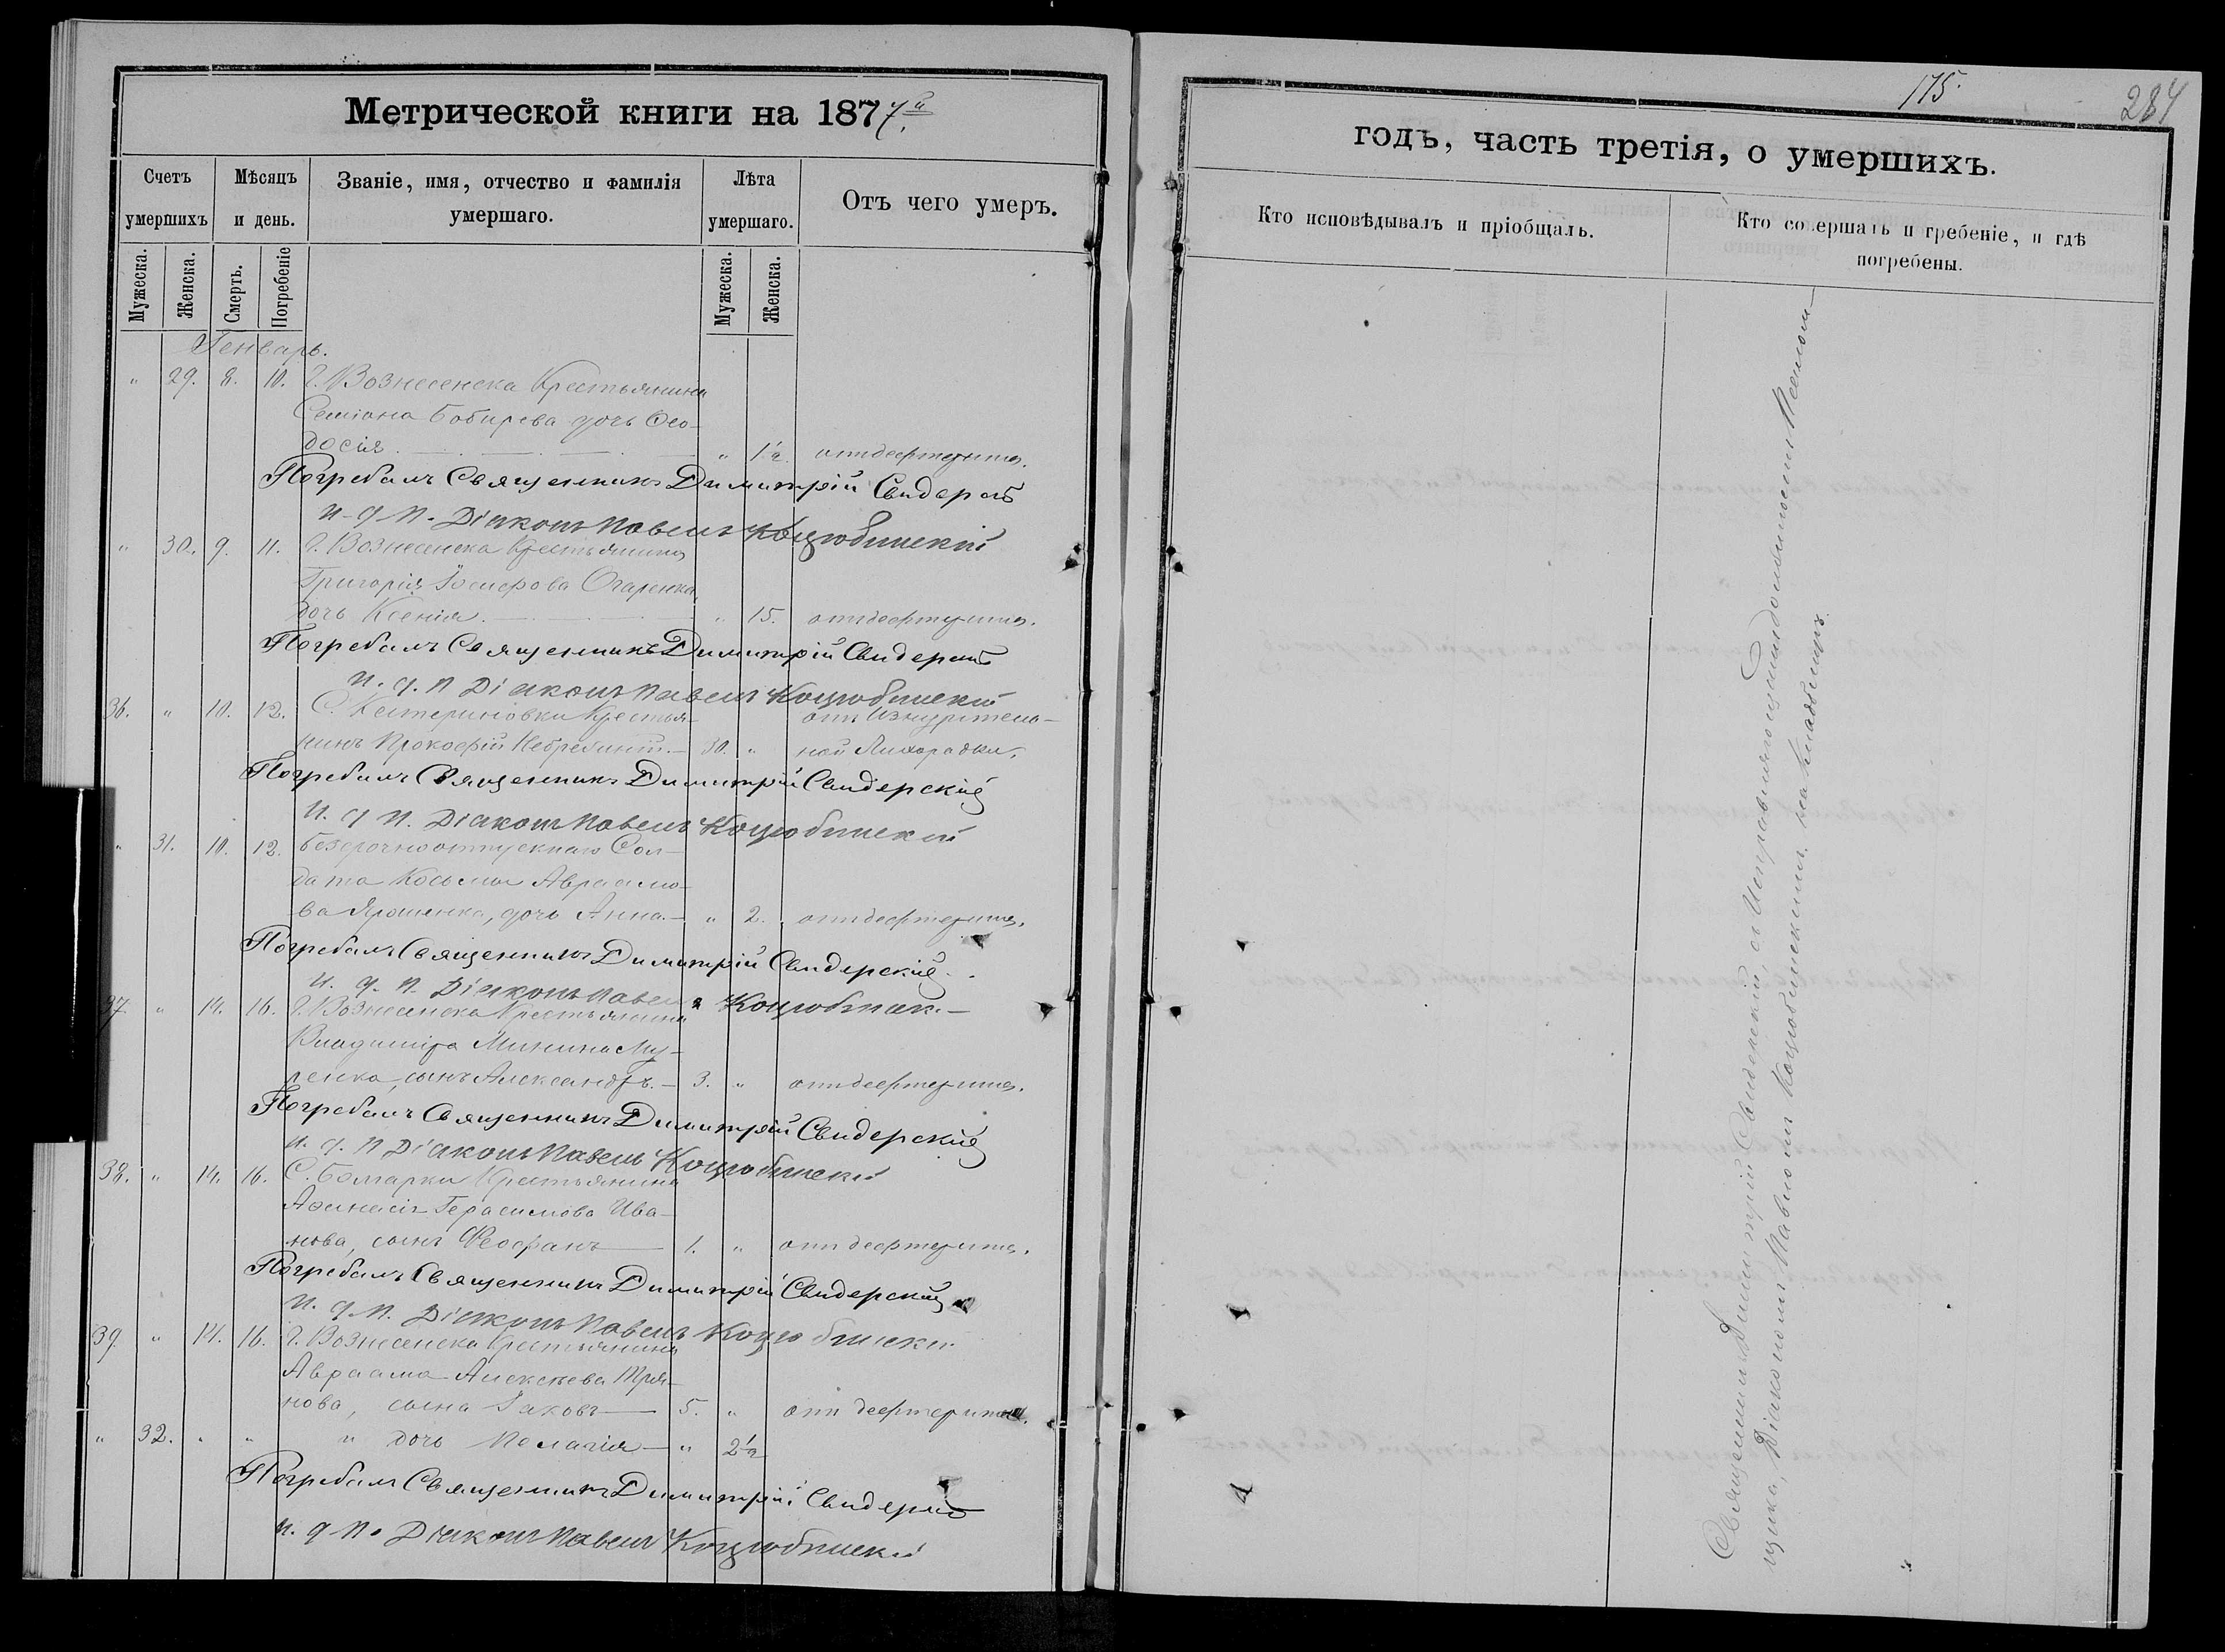 Метрической книги на 1877й
Счетъ умершихъ
Мѣсяцъ и день.
Званіе, имя, отчество и фамилія умершаго.
Лѣта умершаго.
Отъ чего умеръ.
Мужеска. Женска. Смерть. Погребеніе Мужеска. Женска.
Генварь.
" 29. 8. 10. Г. Вознесенска Крестьянина
Семіона Бобирева дочь Ѳео-
досія " 1½. отъ дефтерита.
Погребалъ Священникъ Димитрій Свидерскій
и. д. п. Діаконъ Павелъ Коцюбинскій
" 30. 9. 11. Г. Вознесенска Крестьянина
Григорія Іосифова Огаренка,
дочь Ксенія " 15. отъ дефтерита.
Погребалъ Священникъ Димитрій Свидерскій
и. д. п Діаконъ Павелъ Коцюбинскій
36. " 10. 12. С. Катериновки Крестья-
нинъ Прокофій 30. " отъ Изнурительной Лихорадки.
Погребалъ Священникъ Димитрій Свидерскій
и. д п. Діаконъ Павелъ Коцюбинскій
" 31. 10. 12. безсрочноотпускнаго Сол-
дата Косьмы Авраамо-
ва Ярошенка, дочь Анна " 2. отъ дефтерита.
Погребалъ Священникъ Димитрій Свидерскій
и. д. п. Діаконъ Павелъ Коцюбинск.
37. " 14. 16. Г. Вознесенска Крестьянина
Владиміра Минина Му-
ренка, сынъ Александръ. 3. " отъ дефтерита.
Погребалъ Священникъ Димитрій Свидерскій
и. д. п Діаконъ Павелъ Коцюбинскій
38. " 14. 16. С. Болгарки Крестьянина
Аѳанасія Герасимова Ива-
нова, сынъ Ѳеофанъ 1. " отъ дефтерита.
Погребалъ Священникъ Димитрій Свидерскій
и. д. п. Діаконъ Павелъ Коцюбинскій
39. " 14. 16. Г. Вознесенска Крестьянина
Авраама Алексѣева
сына Іаковъ 5. " отъ дефтерита.
" 32. " " " дочь Пелагія " 2½
Погребалъ Священникъ Димитрій Свидерскій
и. д п. Діаконъ Павелъ Коцюбинскій
175.
284
годъ, часть третія, о умершихъ.
Кто исповѣдывалъ и пріобщалъ.
Кто совершалъ погребеніе, и гдѣ погребены.
Священникъ Димитрій Свидерскій, съ Исправляющимъ должность Псаломщика, Діакономъ Павломъ Коцюбинскимъ на Кладбищѣ.